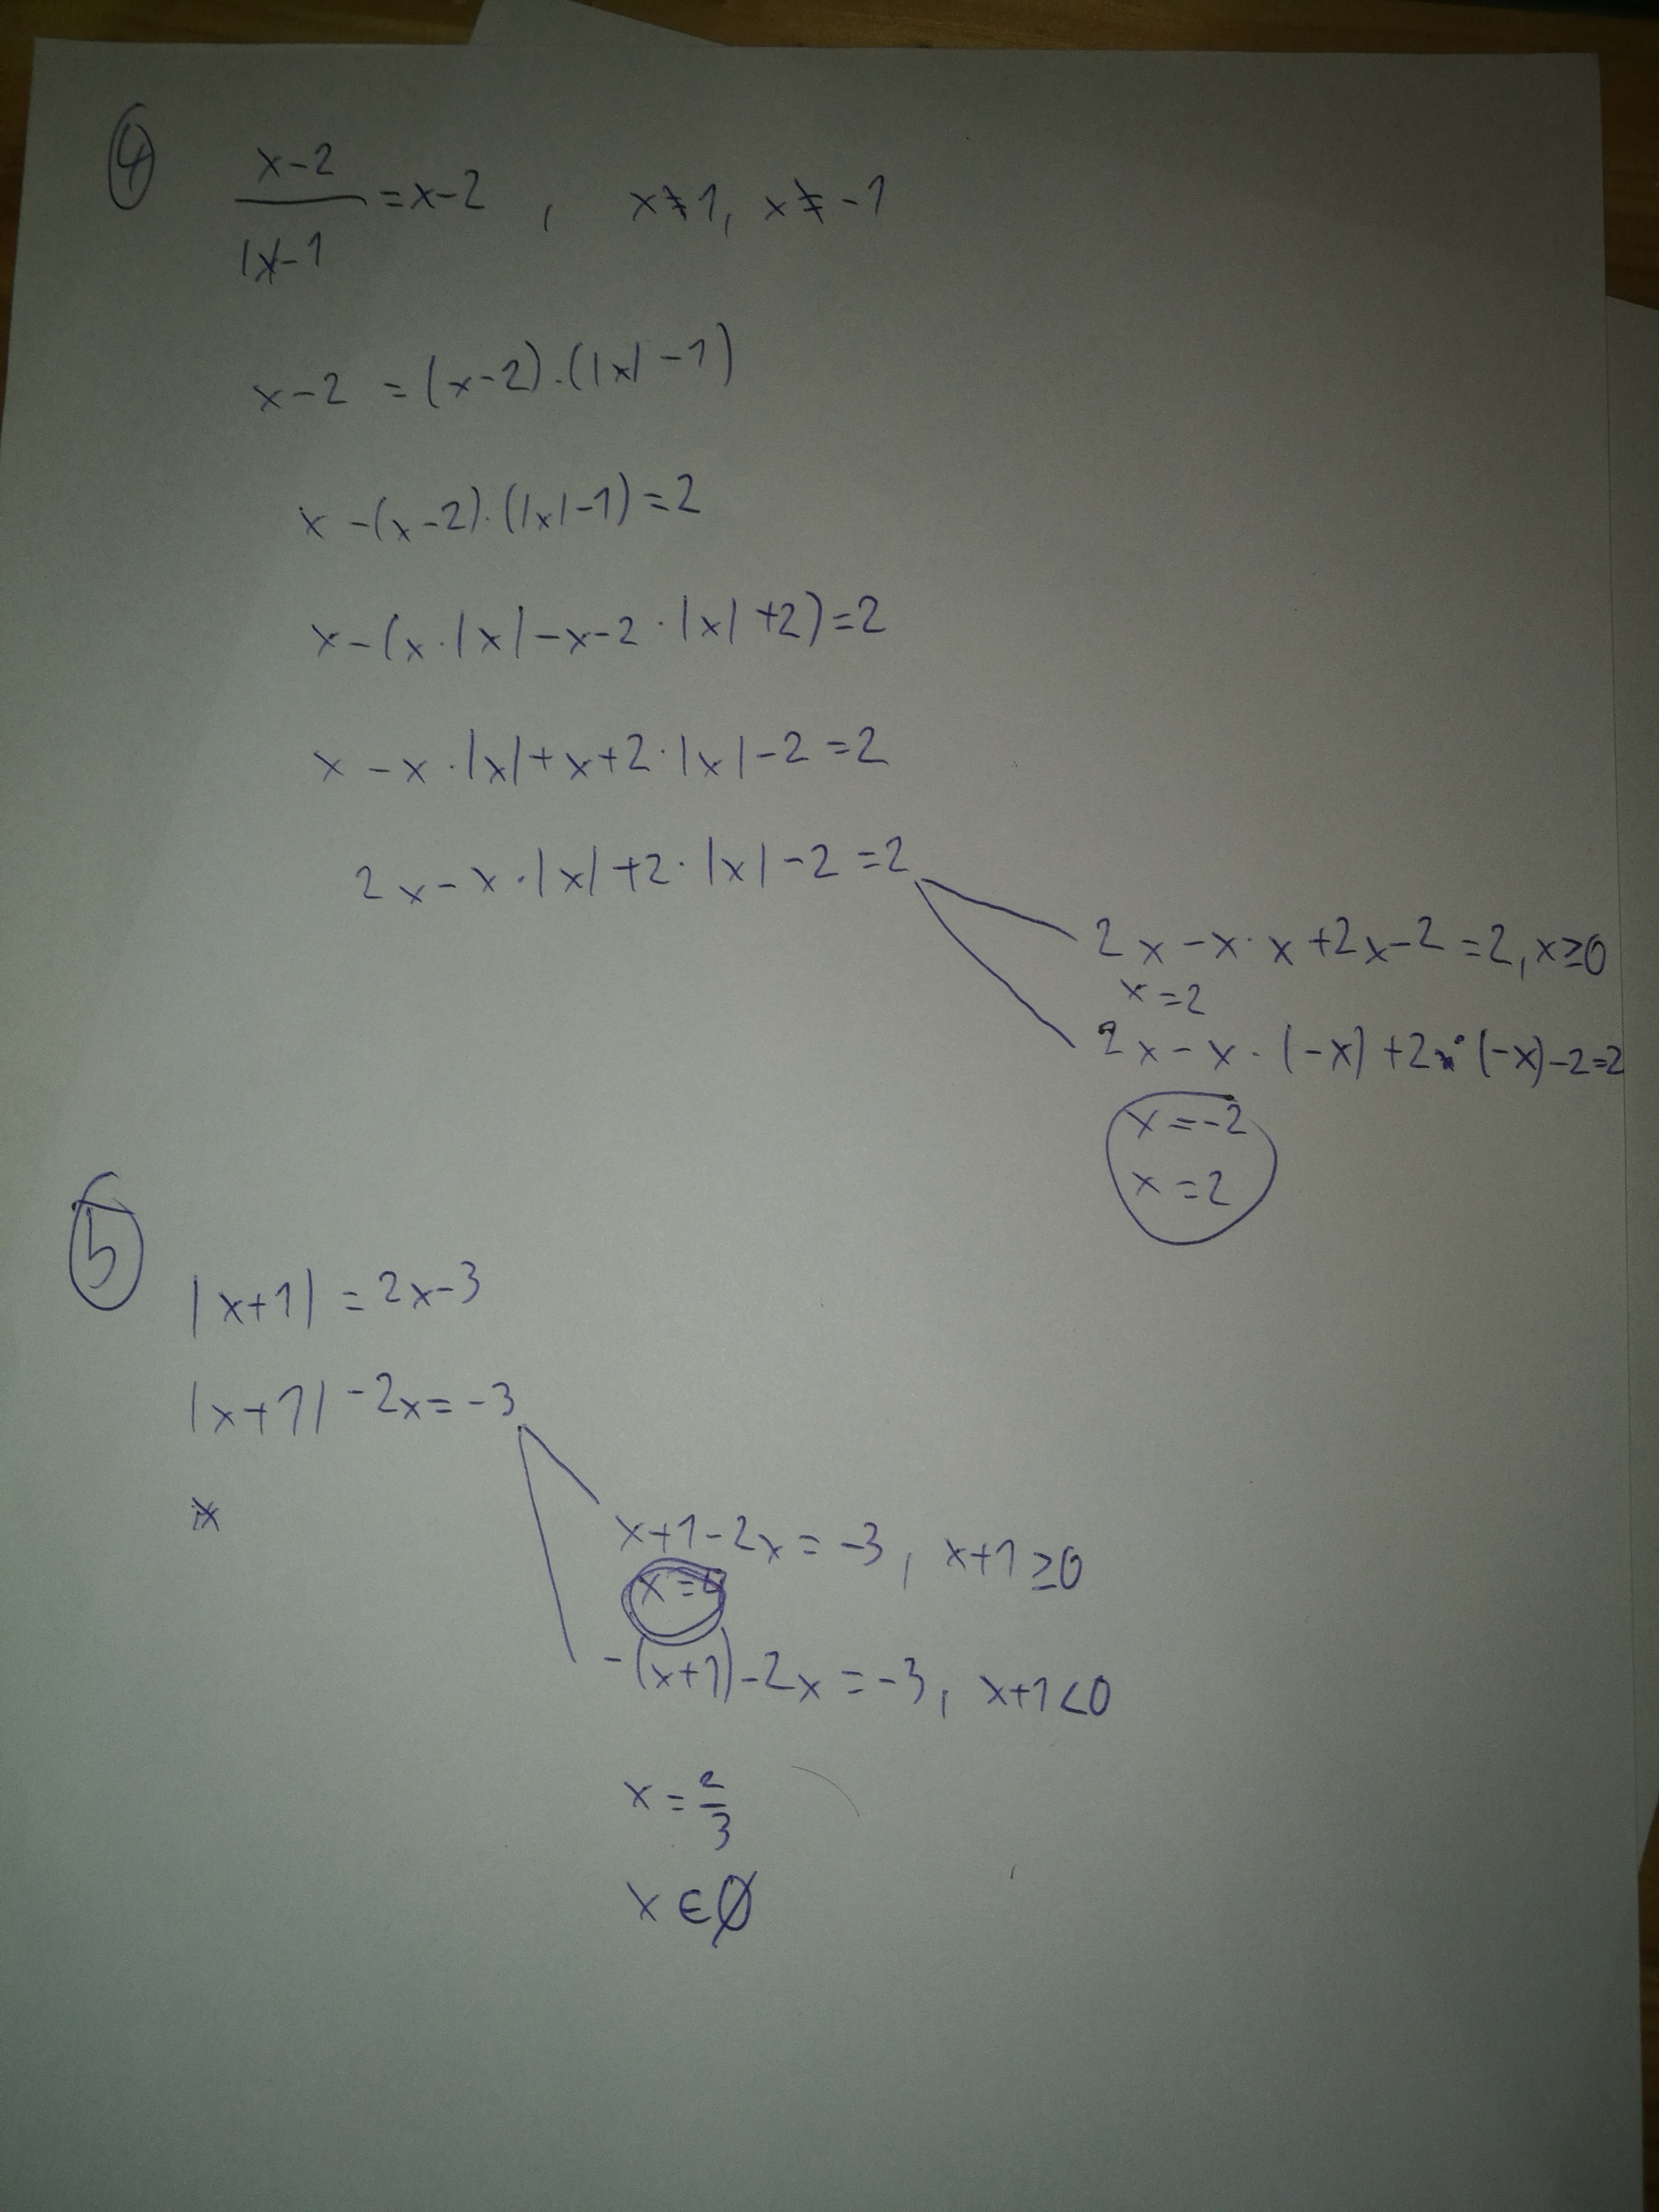 4
x-2
——— = x-2 , x≠1, x≠-1
|x|-1
x-2 = (x-2)·(|x|-1)
x-(x-2)·(|x|-1)=2
x-(x·|x|-x-2·|x|+2)=2
x-x·|x|+x+2·|x|-2=2
2x-x·|x|+2·|x|-2=2
2x-x·x+2x-2=2, x≥0
x=2
2x-x·(-x)+2·(-x)-2=2
x=-2
x=2
5
|x+1|=2x-3
|x+1|-2x=-3
x
x+1-2x=-3, x+1≥0
x=4
-(x+1)-2x=-3, x+1<0
x=2/3
x∈Ø